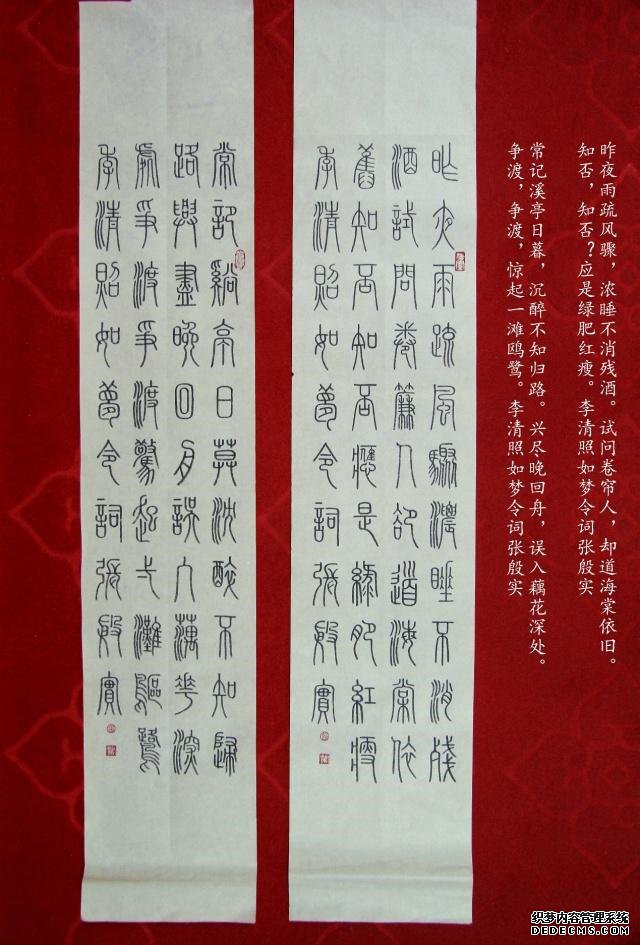 昨夜雨疏风骤，浓睡不消残酒。试问卷帘人，却道海棠依旧。
知否，知否？应是绿肥红瘦。李清照如梦令词张殷实
常记溪亭日暮，沉醉不知归路。兴尽晚回舟，误入藕花深处。
争渡，争渡，惊起一滩鸥鹭。李清照如梦令词张殷实
昨夜雨疏風驟濃睡不消殘
酒試問卷簾人卻道海棠依
舊知否知否應是綠肥紅瘦
李清照如夢令詞張殷實
常記谿亭日莫沈醉不知歸
路興盡晚回舟誤入藕花深
處爭渡爭渡驚起弌灘鷗鷺
李清照如夢令詞張殷實
织梦内容管理系统
DEDECMS.COM